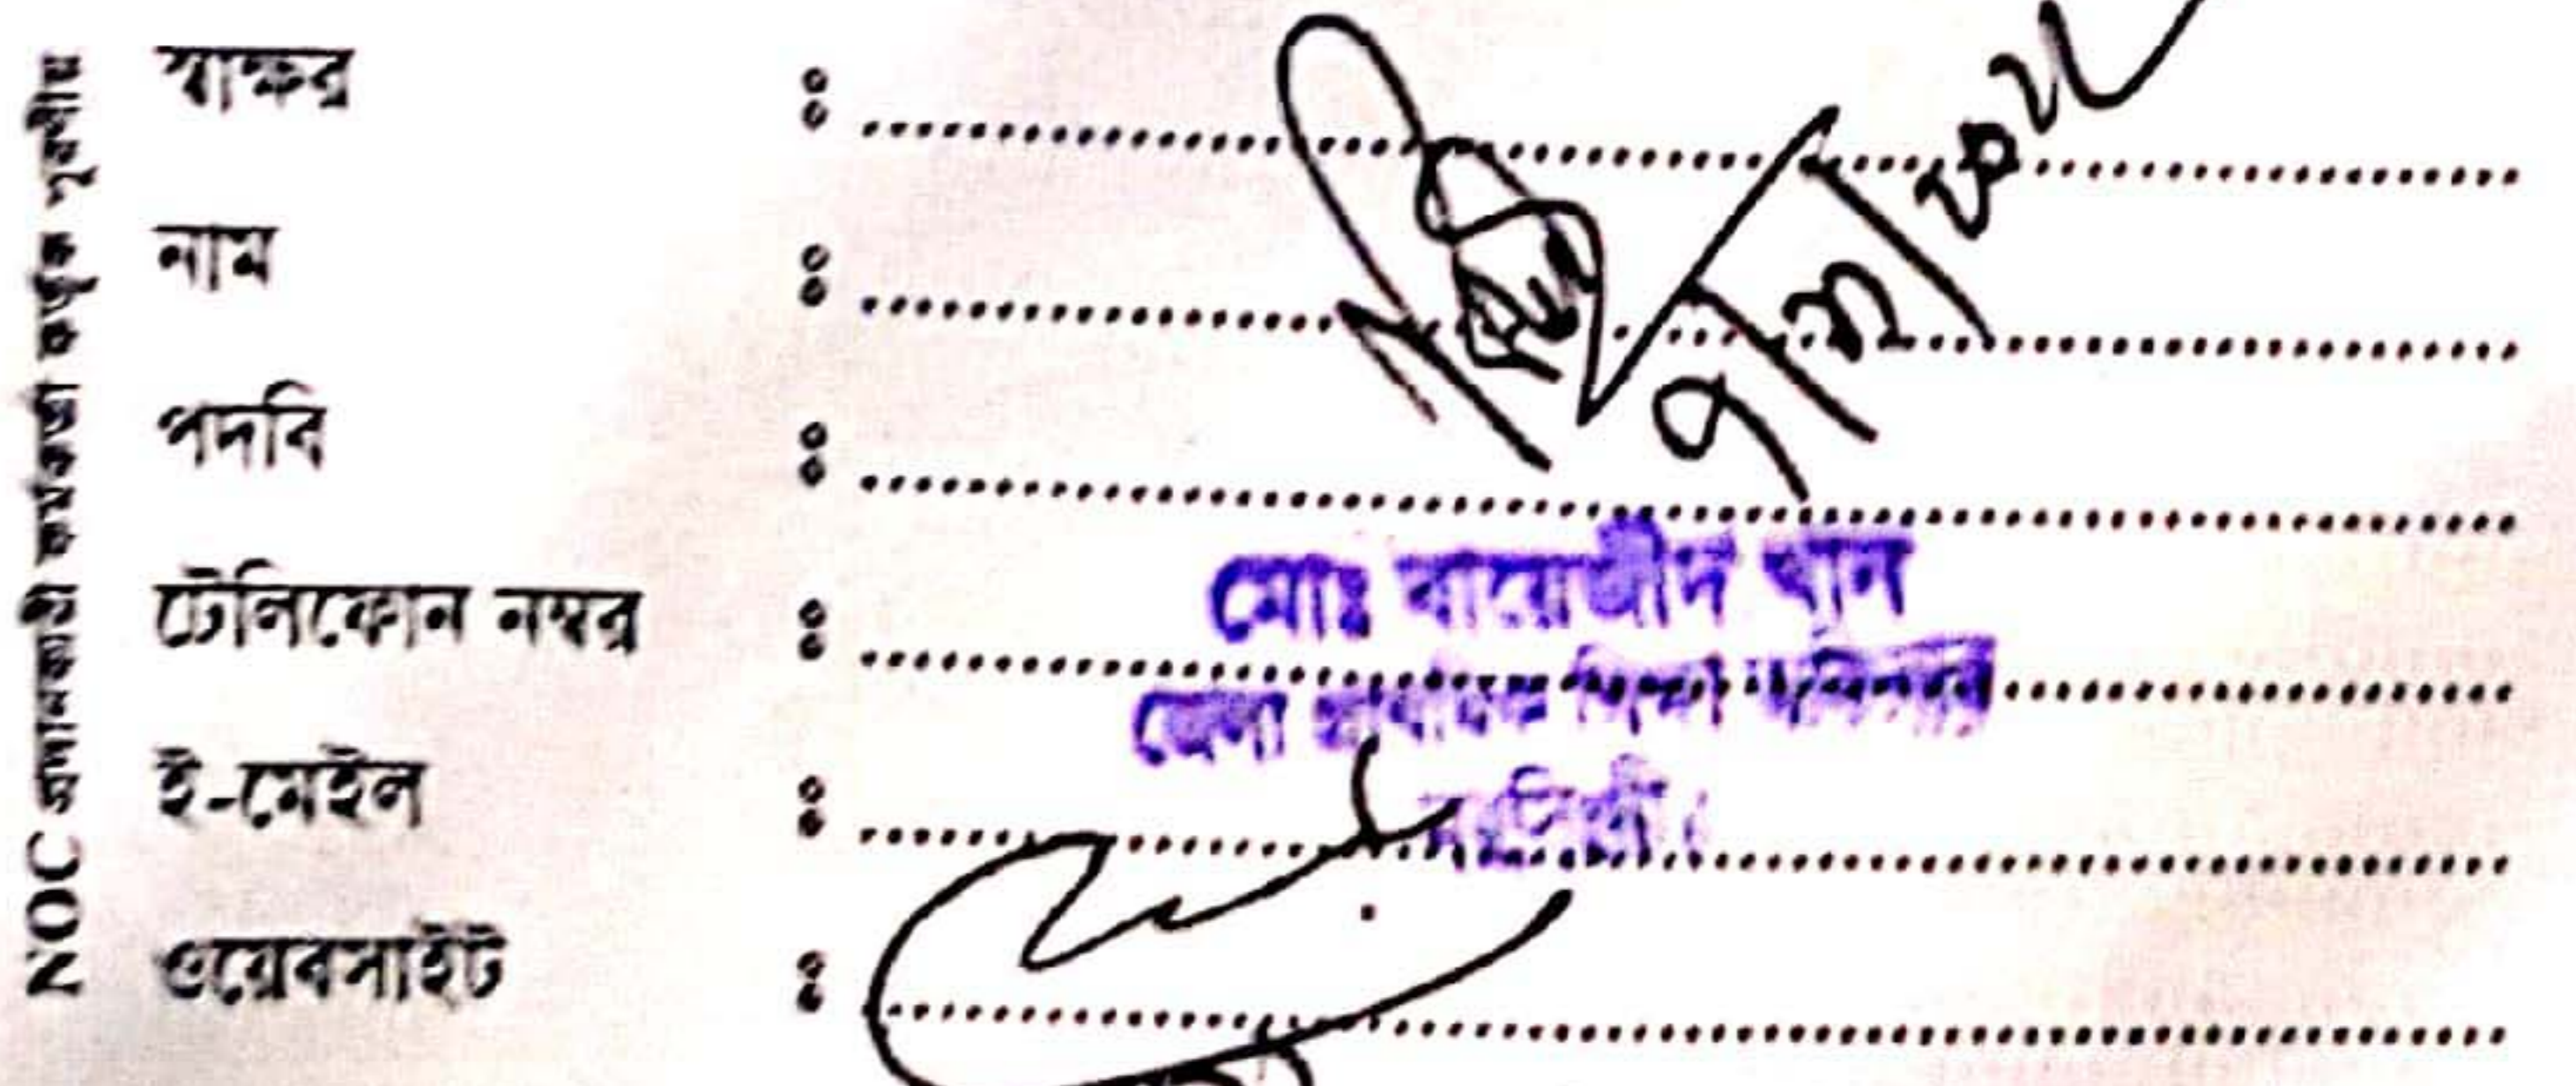 NOC প্রদানকারী কর্মকর্তা কর্তৃক পূরণীয়
স্বাক্ষর :
নাম :
পদবি :
টেলিফোন নম্বর :
ই-মেইল :
ওয়েবসাইট :
মোঃ বায়েজীদ খান
জেলা প্রাথমিক শিক্ষা অফিসার